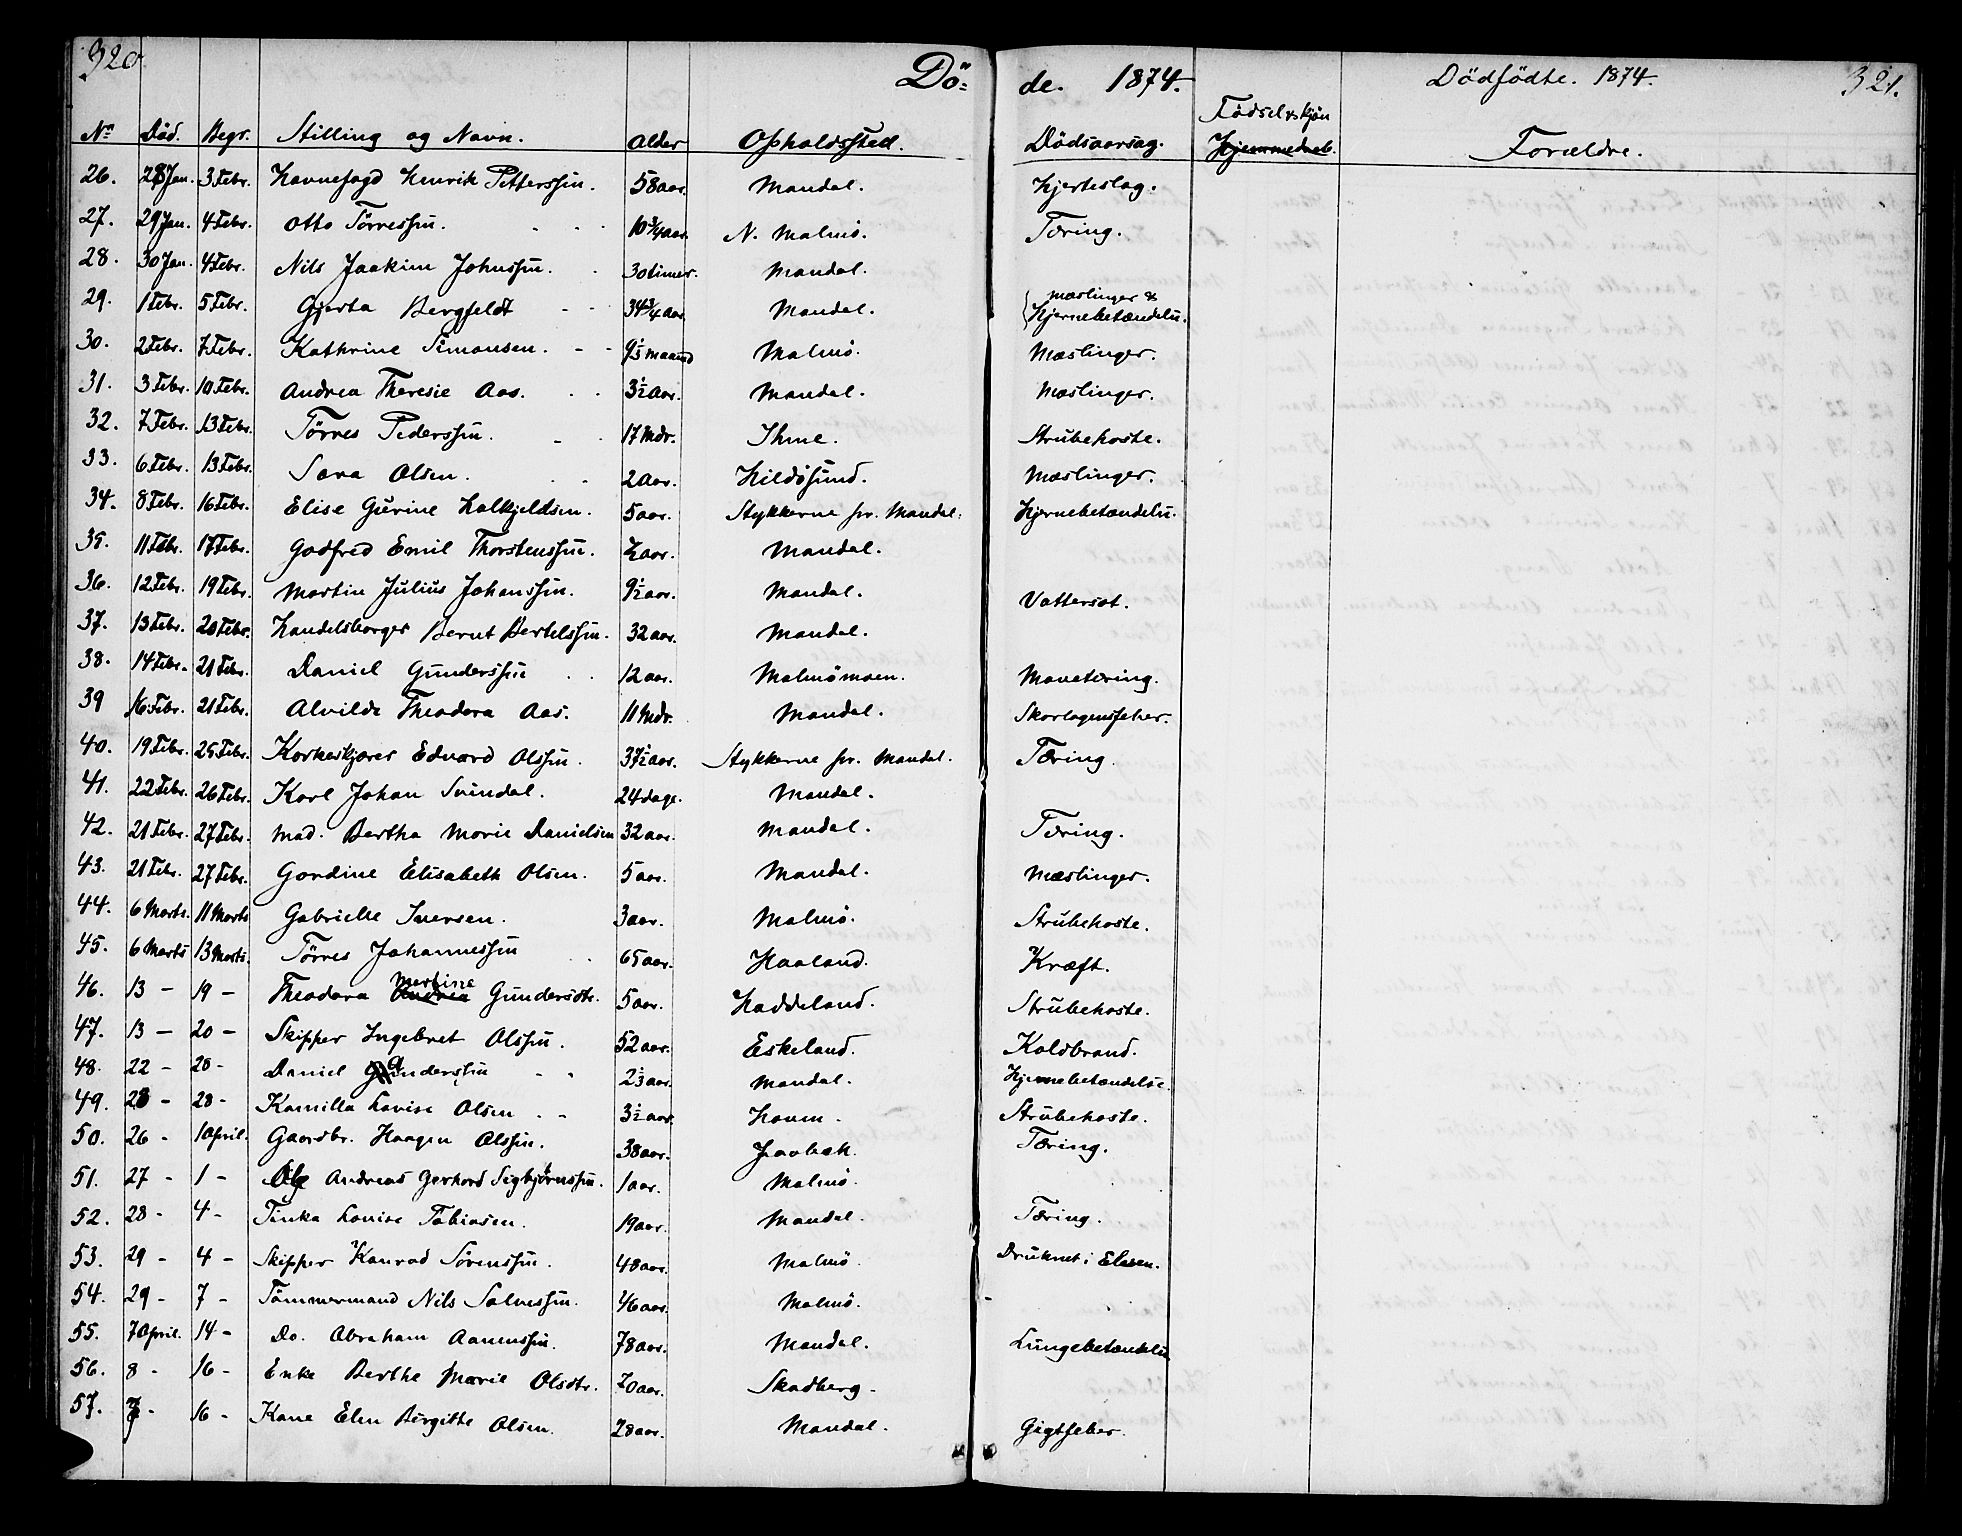 320. Dö= de. 1874. Dödfödte. 1874. 321.
No Död. Begr. Stilling og Navn. Alder Opholdssted. Dödsaarsag. Födsel & kjön Forældre.
26. 28 Jan. 3 Febr. Havnefogd Henrik Pettersen. 58 aar. Mandal. Hjerteslag.
27. 29 Jan. 4 Febr. Otto Törressen. 10 3/4 aar. N. Malmö. Tæring.
28. 30 Jan. 4 Febr. Nils Joakim Johnssen. 30 timer. Mandal.
29. 1 Febr. 5 Febr. Gjerta Bergfeldt 34 3/4 aar. Mandal. Mæslinger & Hjernebetændelse.
30. 2 Febr. 7 Febr. Kathrine Simonsen. 9 1/3 maaned Malmö. Mæslinger.
31. 3 Febr. 10 Febr. Andrea Theresie Aas. 3 1/2 aar. Mandal. Mæslinger.
32. 7 Febr. 13 Febr. Törres Pederssen. 17 Mdr. Ihme. Strubehoste.
33. 6 Febr. 13 Febr. Sara Olsen. 2 aar. Hildösund. Mæslinger.
34. 8 Febr. 16 Febr. Elise Gurine Halkjeldsen. 5 aar. Stykkerne pr. Mandal. Hjernebetændelse.
35. 11 Febr. 17 Febr. Godfred Emil Thorstenssen. 1/2 aar. Mandal.
36. 12 Febr. 19 Febr. Martin Julius Johanssen. 9 1/2 aar. Mandal. Vattersot.
37. 13 Febr. 20 Febr. Handelsborger Bernt Bertelssen. 32 aar. Mandal.
38. 14 Febr. 21 Febr. Daniel Gunderssen 12 aar. Malmömoen. Mavetæring.
39 16 Febr. 21 Febr. Alvilde Theodora Aas. 11 Mdr. Mandal. Skarlagensfeber.
40. 19 Febr. 25 Febr. Korkeskjærer Edvard Olssen. 37 1/2 aar. Stykkerne pr. Mandal. Tæring.
41. 22 Febr. 26 Febr. Karl Johan Svindal. 24 dage. Mandal.
42. 21 Febr. 27 Febr. Mad. Bertha Marie Danielsen 32 aar. Mandal. Tæring.
43. 21 Febr. 27 Febr. Gordine Elisabeth Olsen. 5 aar. Mandal. Mæslinger.
44. 6 Marts. 11 Marts Gabrielle Iversen. 3 aar. Malmö. Strubehoste.
45. 6 Marts 13 Marts. Törres Johannessen 65 aar. Haaland. Kræft.
46. 13 - 19 - Theodora Martine Gundersdtr. 5 aar. Haddeland. Strubehoste.
47. 13 - 20 - Skipper Ingebret Olssen. 52 aar. Eskeland. Koldbrand.
48. 22 - 28 - Daniel Gunderssen 2 1/3 aar. Mandal. Hjernebetændelse.
49. 23 - 28 - Kamilla Lovise Olsen 3 1/2 aar. Houm. Strubehoste.
50. 26 - 1 April. Gaardbr. Haagen Olssen. 38 aar. Jaabæk. Tæring.
51. 27 - 1 - Ole Andreas Gerhard Sigbjörnssen. 1 aar. Malmö.
52. 28 - 4 - Tinka Lovise Tobiasen. 19 aar. Mandal. Tæring.
53. 29 - 4 - Skipper Konrad Sörenssen. 40 aar. Malmö. Druknet i Elven.
54. 29 - 7 - Tömmermand Nils Salvessen. 46 aar. Malmö.
55. 7 April. 14 - Do. Abraham Aanenssen. 78 aar. Mandal. Lungebetændelse
56. 8 - 16 - Enke Berthe Marie Olsdtr. 70 aar. Skadberg.
57. 7 - 16 - Kone Elen Birgitte Olsen. 28 aar. Mandal. Gigtfeber.